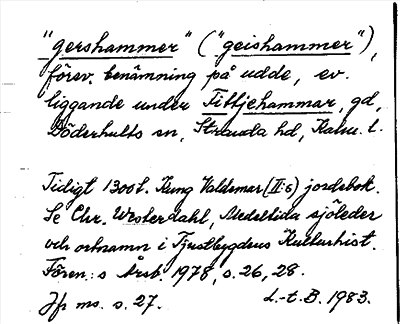 "gershammer" ("geishammer"),
försv. benämning på udde, ev.
liggande under Tittjehammar, gd,
Döderhults sn, Stranda hd, Kalm. l.
Tidigt 1300t. Kung Valdemar (II:s) jordebok.
Se Chr. Westerdahl, Medeltida sjöleder
och ortnamn i Tjustbygdens Kulturhist.
Fören:s Årsb. 1978, s. 26, 28.
Jfr ms. s. 27. L.-t. B. 1983.